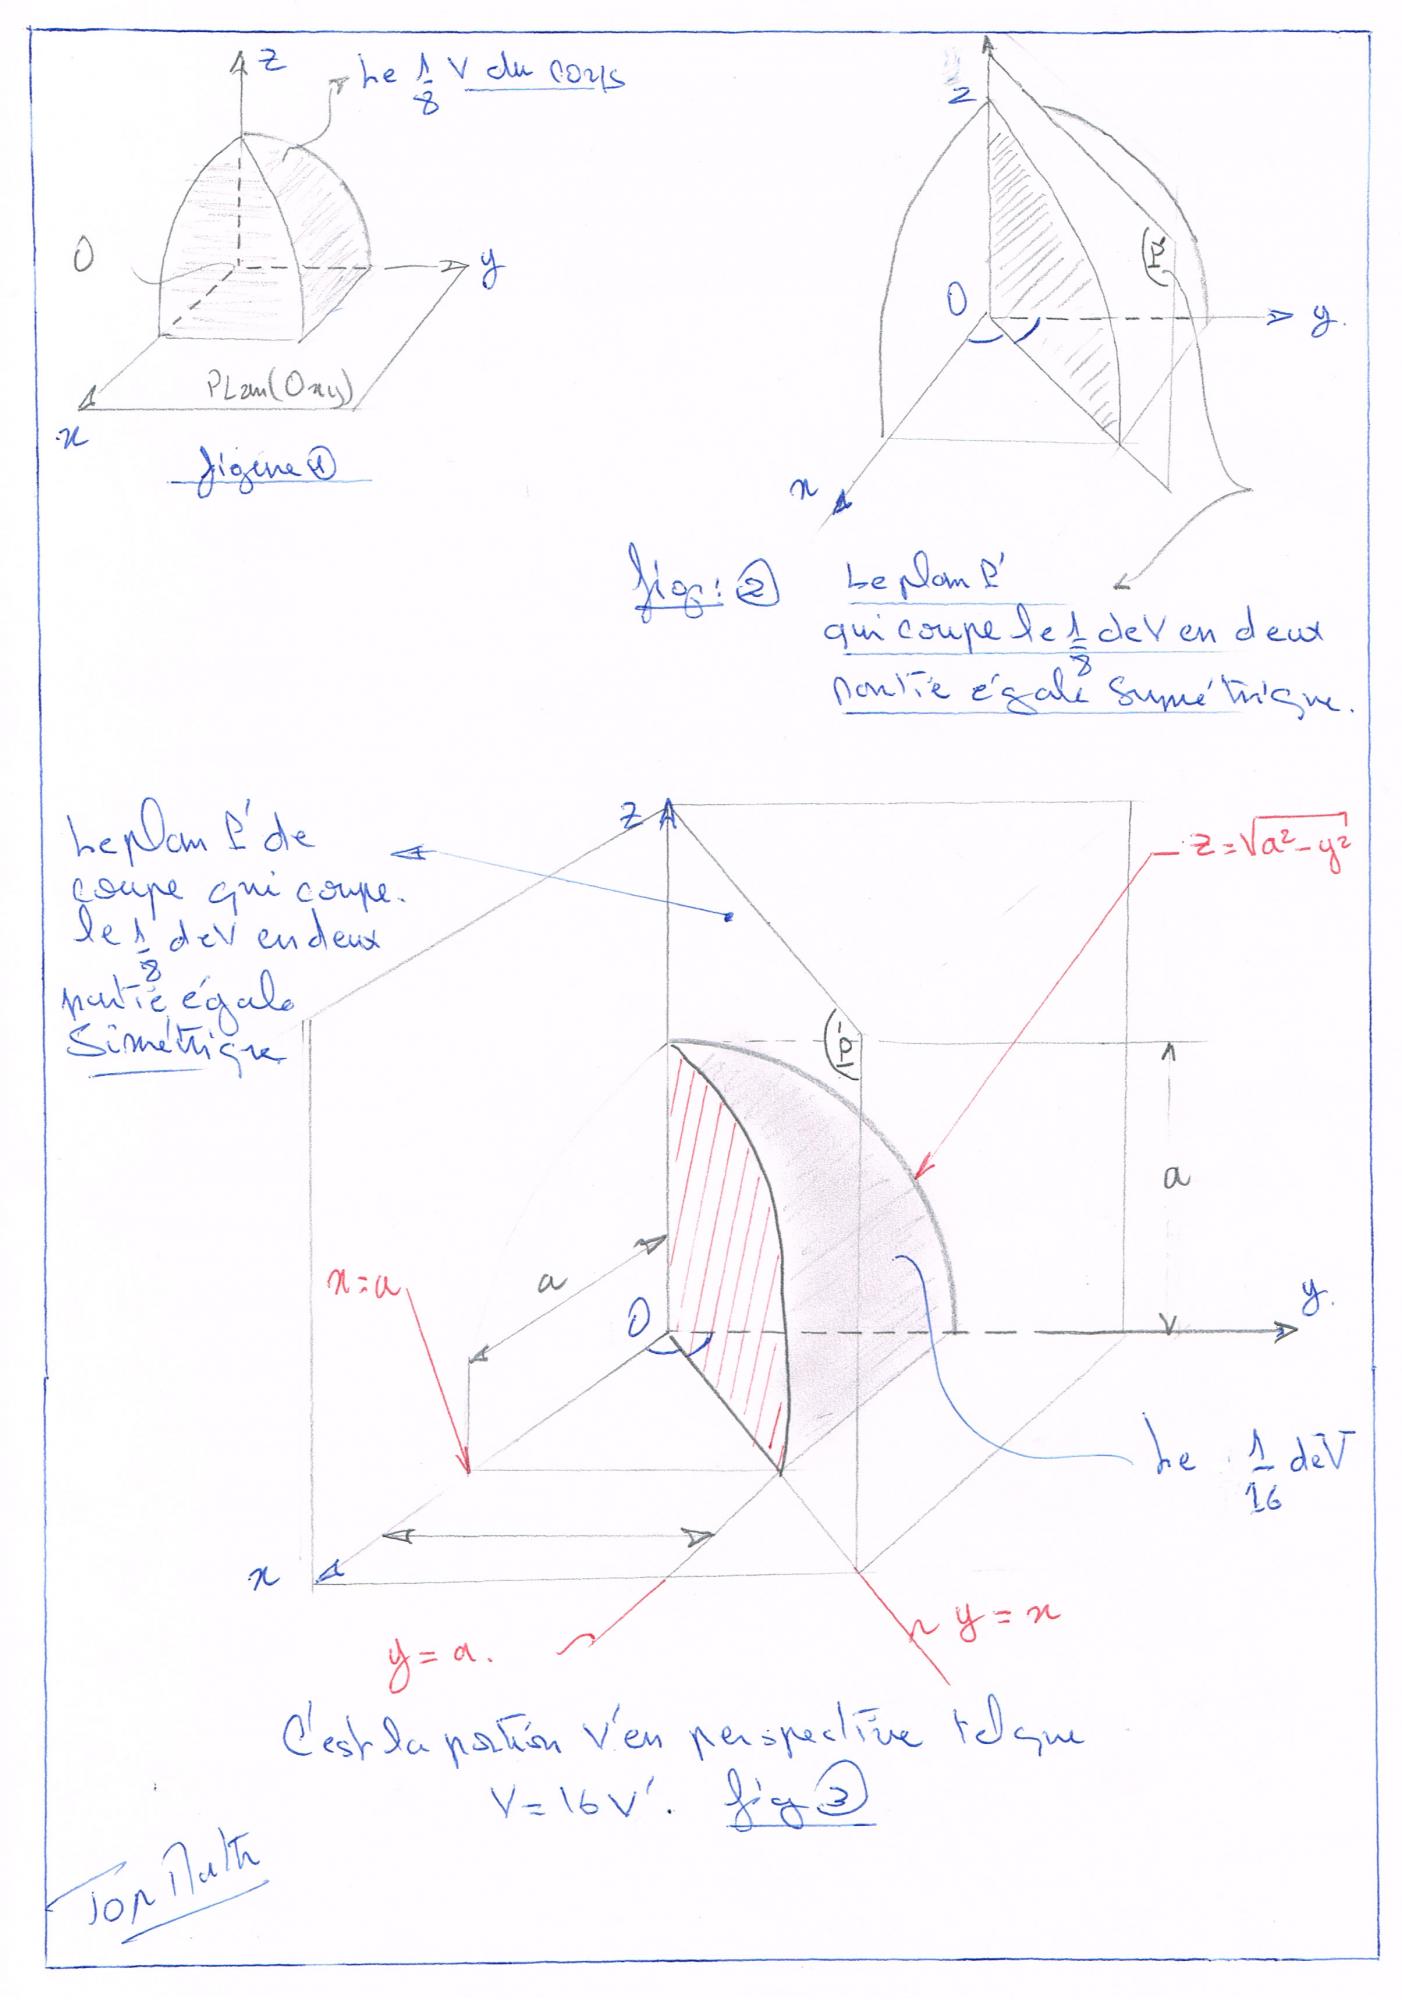 z
Le 1/8 V du corps
O
y
Plan(Oxy)
x
figure ①
z
(P')
O
y.
x
fig: ② Le plan P'
qui coupe le 1/8 de V en deux
partie égale Symétrique.
Le plan P' de
coupe qui coupe.
le 1/8 de V en deux
partie égale
Simétrique
z
z=√a²-y²
(P')
a
x=a
a
O
y.
Le 1/16 de V
x
y = x
y = a.
C'est la portion V' en perspective tel que
V = 16 V'. fig ③
Top Math